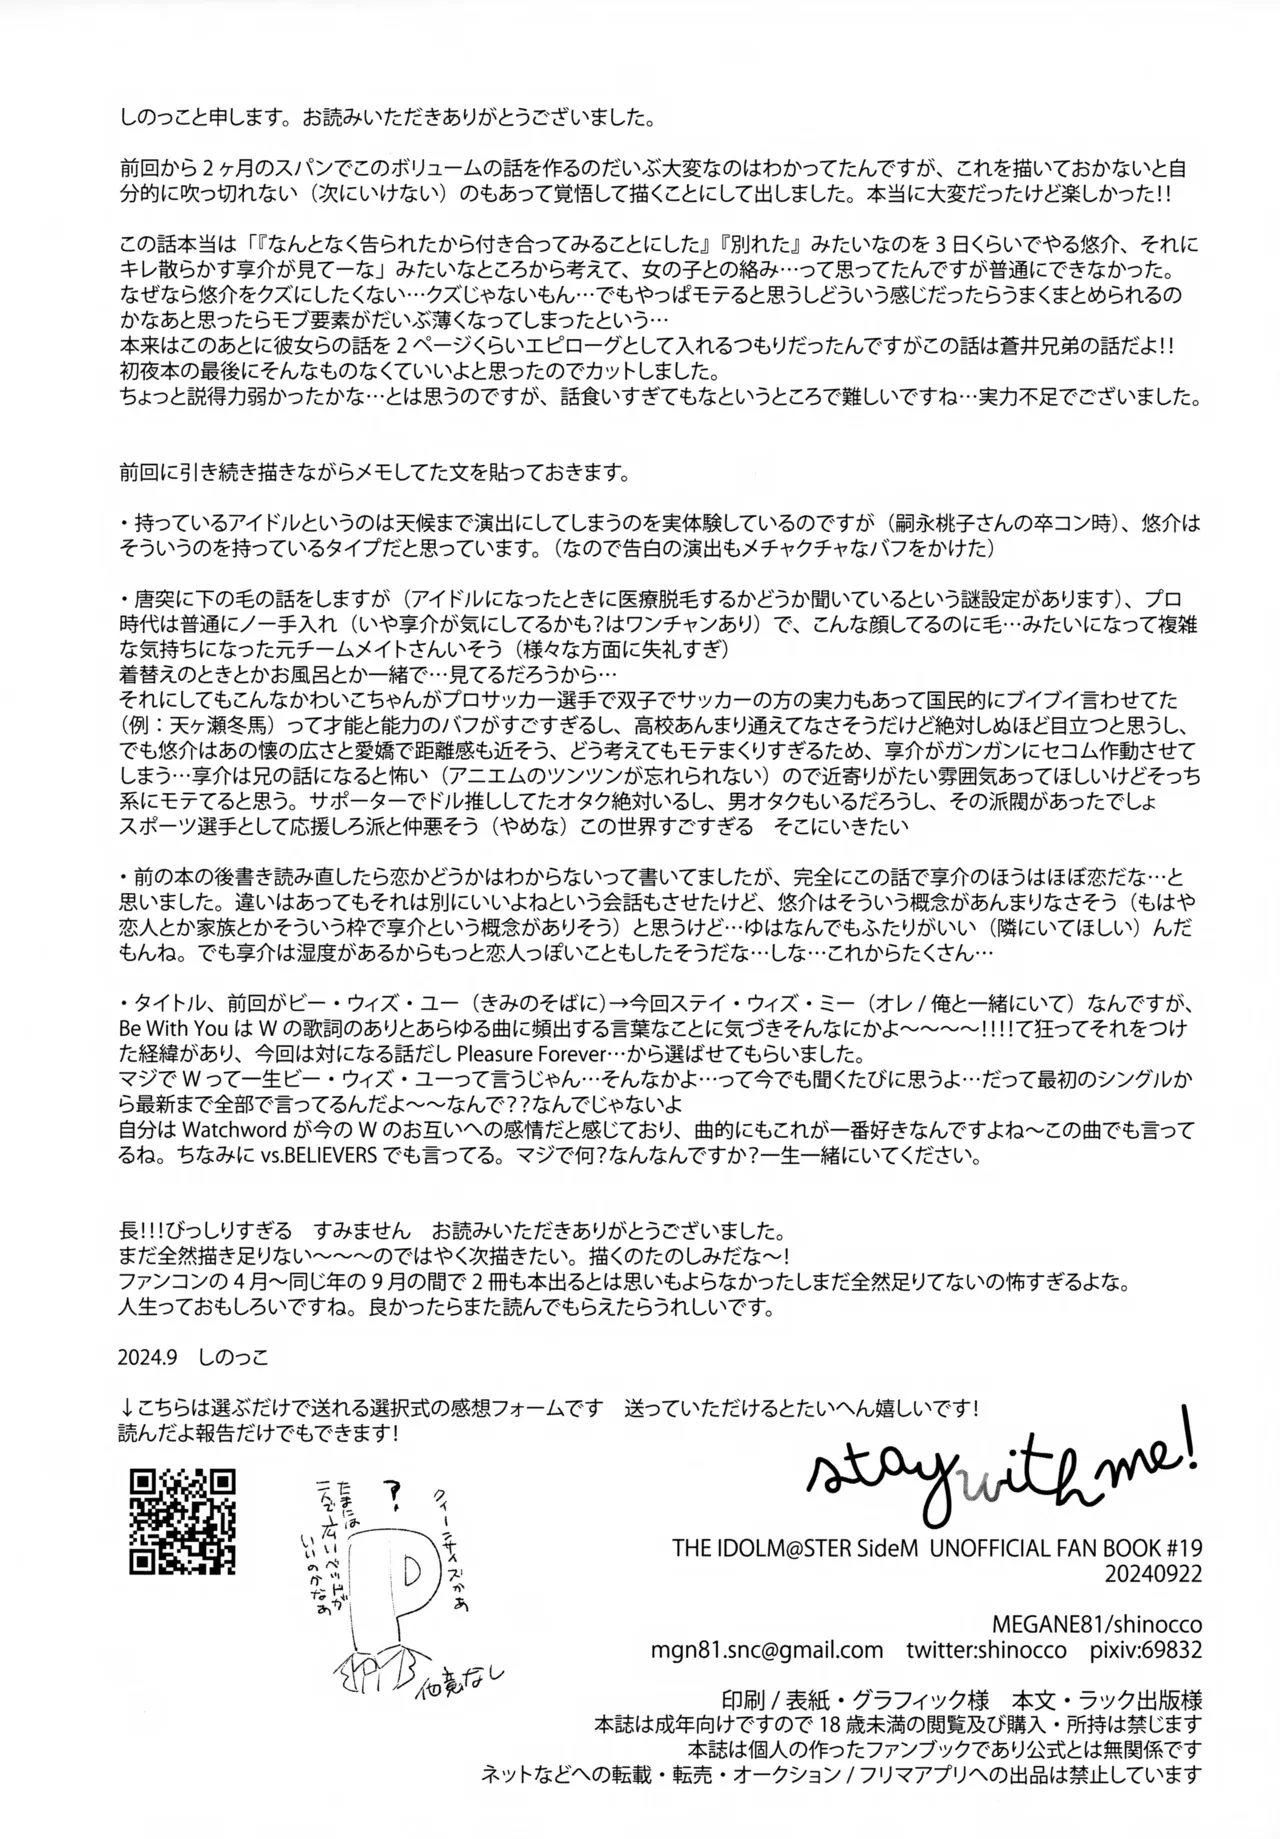 しのっこと申します。お読みいただきありがとうございました。
前回から 2 ヶ月のスパンでこのボリュームの話を作るのだいぶ大変なのはわかってたんですが、これを描いておかないと自
分的に吹っ切れない（次にいけない）のもあって覚悟して描くことにして出しました。本当に大変だったけど楽しかった!!
この話本当は「『なんとなく告られたから付き合ってみることにした』『別れた』みたいなのを 3 日くらいでやる悠介、それに
キレ散らかす享介が見てーな」みたいなところから考えて、女の子との絡み…って思ってたんですが普通にできなかった。
なぜなら悠介をクズにしたくない…クズじゃないもん…でもやっぱモテると思うしどういう感じだったらうまくまとめられるの
かなあと思ったらモブ要素がだいぶ薄くなってしまったという…
本来はこのあとに彼女らの話を 2 ページくらいエピローグとして入れるつもりだったんですがこの話は蒼井兄弟の話だよ!!
初夜本の最後にそんなものなくていいよと思ったのでカットしました。
ちょっと説得力弱かったかな…とは思うのですが、話食いすぎてもなというところで難しいですね…実力不足でございました。
前回に引き続き描きながらメモしてた文を貼っておきます。
・持っているアイドルというのは天候まで演出にしてしまうのを実体験しているのですが（嗣永桃子さんの卒コン時）、悠介は
そういうのを持っているタイプだと思っています。（なので告白の演出もメチャクチャなバフをかけた）
・唐突に下の毛の話をしますが（アイドルになったときに医療脱毛するかどうか聞いているという謎設定があります）、プロ
時代は普通にノー手入れ（いや享介が気にしてるかも?はワンチャンあり）で、こんな顔してるのに毛…みたいになって複雑
な気持ちになった元チームメイトさんいそう（様々な方面に失礼すぎ）
着替えのときとかお風呂とか一緒で…見てるだろうから…
それにしてもこんなかわいこちゃんがプロサッカー選手で双子でサッカーの方の実力もあって国民的にブイブイ言わせてた
（例：天ヶ瀬冬馬）って才能と能力のバフがすごすぎるし、高校あんまり通えてなさそうだけど絶対しぬほど目立つと思うし、
でも悠介はあの懐の広さと愛嬌で距離感も近そう、どう考えてもモテまくりすぎるため、享介がガンガンにセコム作動させて
しまう…享介は兄の話になると怖い（アニエムのツンツンが忘れられない）ので近寄りがたい雰囲気あってほしいけどそっち
系にモテてると思う。サポーターでドル推ししてたオタク絶対いるし、男オタクもいるだろうし、その派閥があったでしょ
スポーツ選手として応援しろ派と仲悪そう（やめな）この世界すごすぎる　そこにいきたい
・前の本の後書き読み直したら恋かどうかはわからないって書いてましたが、完全にこの話で享介のほうはほぼ恋だな…と
思いました。違いはあってもそれは別にいいよねという会話もさせたけど、悠介はそういう概念があんまりなさそう（もはや
恋人とか家族とかそういう枠で享介という概念がありそう）と思うけど…ゆはなんでもふたりがいい（隣にいてほしい）んだ
もんね。でも享介は湿度があるからもっと恋人っぽいこともしたそうだな…しな…これからたくさん…
・タイトル、前回がビー・ウィズ・ユー（きみのそばに）→今回ステイ・ウィズ・ミー（オレ / 俺と一緒にいて）なんですが、
Be With You は W の歌詞のありとあらゆる曲に頻出する言葉なことに気づきそんなにかよ～～～～!!!!て狂ってそれをつけ
た経緯があり、今回は対になる話だし Pleasure Forever…から選ばせてもらいました。
マジで W って一生ビー・ウィズ・ユーって言うじゃん…そんなかよ…って今でも聞くたびに思うよ…だって最初のシングルか
ら最新まで全部で言ってるんだよ～～なんで??なんでじゃないよ
自分は Watchword が今の W のお互いへの感情だと感じており、曲的にもこれが一番好きなんですよね～この曲でも言って
るね。ちなみに vs.BELIEVERS でも言ってる。マジで何?なんなんですか?一生一緒にいてください。
長!!!びっしりすぎる　すみません　お読みいただきありがとうございました。
まだ全然描き足りない～～～のではやく次描きたい。描くのたのしみだな～!
ファンコンの 4 月～同じ年の 9 月の間で 2 冊も本出るとは思いもよらなかったしまだ全然足りてないの怖すぎるよな。
人生っておもしろいですね。良かったらまた読んでもらえたらうれしいです。
2024.9　しのっこ
↓こちらは選ぶだけで送れる選択式の感想フォームです　送っていただけるとたいへん嬉しいです!
読んだよ報告だけでもできます!
stay with me!
クィーンサイズかぁ
?
たまには
こんな広いベッドが
いいのかなぁ
P
他意なし
THE IDOLM@STER SideM UNOFFICIAL FAN BOOK #19
20240922
MEGANE81/shinocco
mgn81.snc@gmail.com　twitter:shinocco　pixiv:69832
印刷 / 表紙・グラフィック様　本文・ラック出版様
本誌は成年向けですので 18 歳未満の閲覧及び購入・所持は禁じます
本誌は個人の作ったファンブックであり公式とは無関係です
ネットなどへの転載・転売・オークション / フリマアプリへの出品は禁止しています